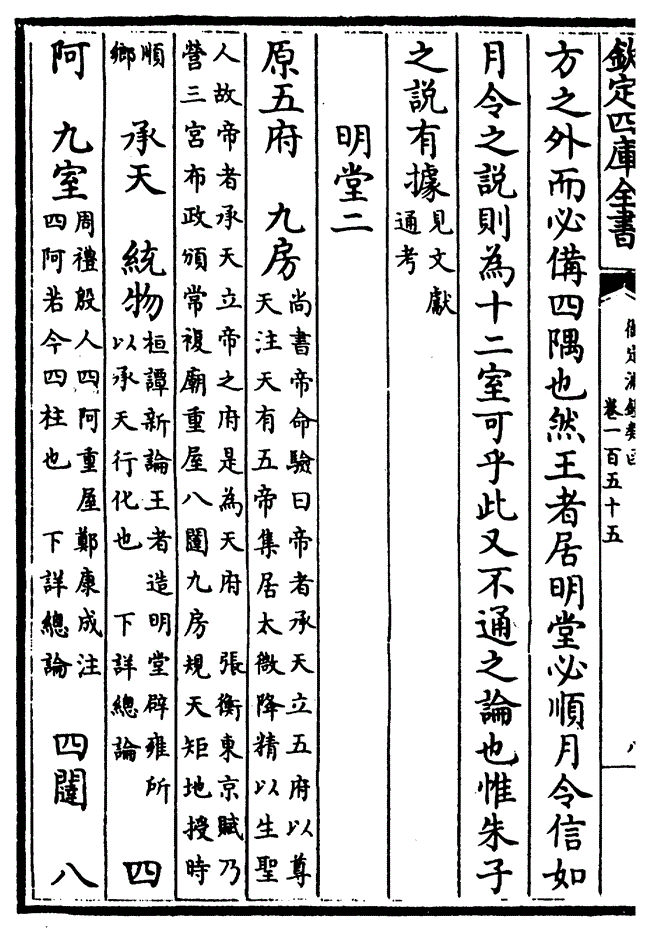 欽定四庫全書
御定淵鑑類函
卷一百五十五
八
方之外而必備四隅也然王者居明堂必順月令信如
月令之說則為十二室可乎此又不通之論也惟朱子
之說有據 見文獻
通考
明堂二
原五府 九房 尚書帝命驗曰帝者承天立五府以尊
天注天有五帝集居太微降精以生聖
人故帝者承天立帝之府是為天府 張衡東京賦乃
營三宮布政頒常複廟重屋八闥九房規天矩地授時
順
鄉 承天 統物 桓譚新論王者造明堂辟雍所
以承天行化也 下詳總論 四
阿 九室 周禮殷人四阿重屋鄭康成注
四阿若今四柱也 下詳總論 四闥 八